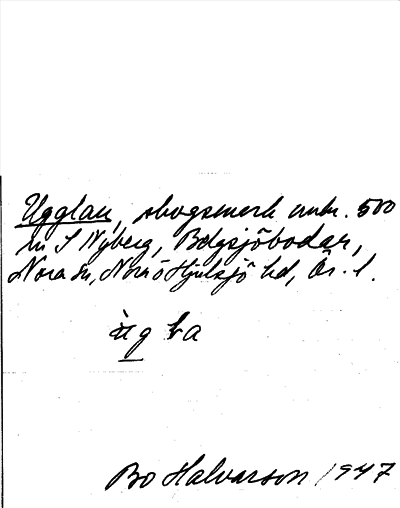 Ugglan, skogsmark omkr. 500
m S Nyberg, Bolgsjöbodar,
Nora sn, Nora o Hjulsjö hd, Ör. l.
ùg la
Bo Halvarson 1947